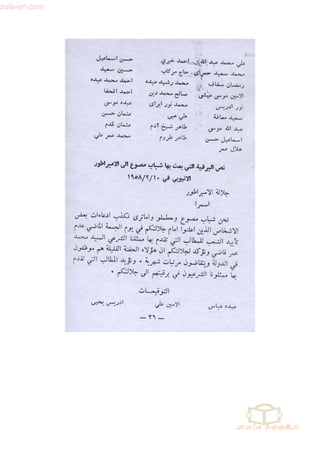 zula-eri.com
علي محمد عبد الله احمد خيري حسن اسماعيل
محمد سعيد جمراى حاج بركاب حسين سعيد
رمضان سفاف محمد رشيد عبده احمد محمد عبده
الامين موسى عيسى صالح محمد دين احمد القحفا
نور ادريس محمد نور ابراى عبده موسى
سعيد معافة علي عبى عثمان حسن
عبد الله موسى طاهر شيخ آدم عثمان قدم
اسماعيل حسن طاهر طروم محمد عمر علي
هلال عمر
نص البرقية التي بعث بها شباب مصوع الى الامبراطور
الاثيوبي في ١٩٥٨/٢/١٠
جلالة الامبراطور
اسمرا
نحن شباب مصوع وحطملو وامباتري نكذب ادعاءات بعض
الاشخاص الذين اعلنوا امام جلالتكم في يوم الجمعة الماضي عدم
تأييد الشعب للمطالب التي تقدم بها ممثلنا الشرعي السيد محمد
عمر قاضي ونؤكد لجلالتكم ان هؤلاء الحفنة القليلة هم موظفون
في الدولة ويتقاضون مرتبات شهرية ٠ ونؤيد المطالب التي تقدم
بها ممثلونا الشرعيون في برقيتهم الى جلالتكم ٠
التوقيعـــات
عبده عباس الامين علي ادريس يحيى
— ٢٦ —
zula books